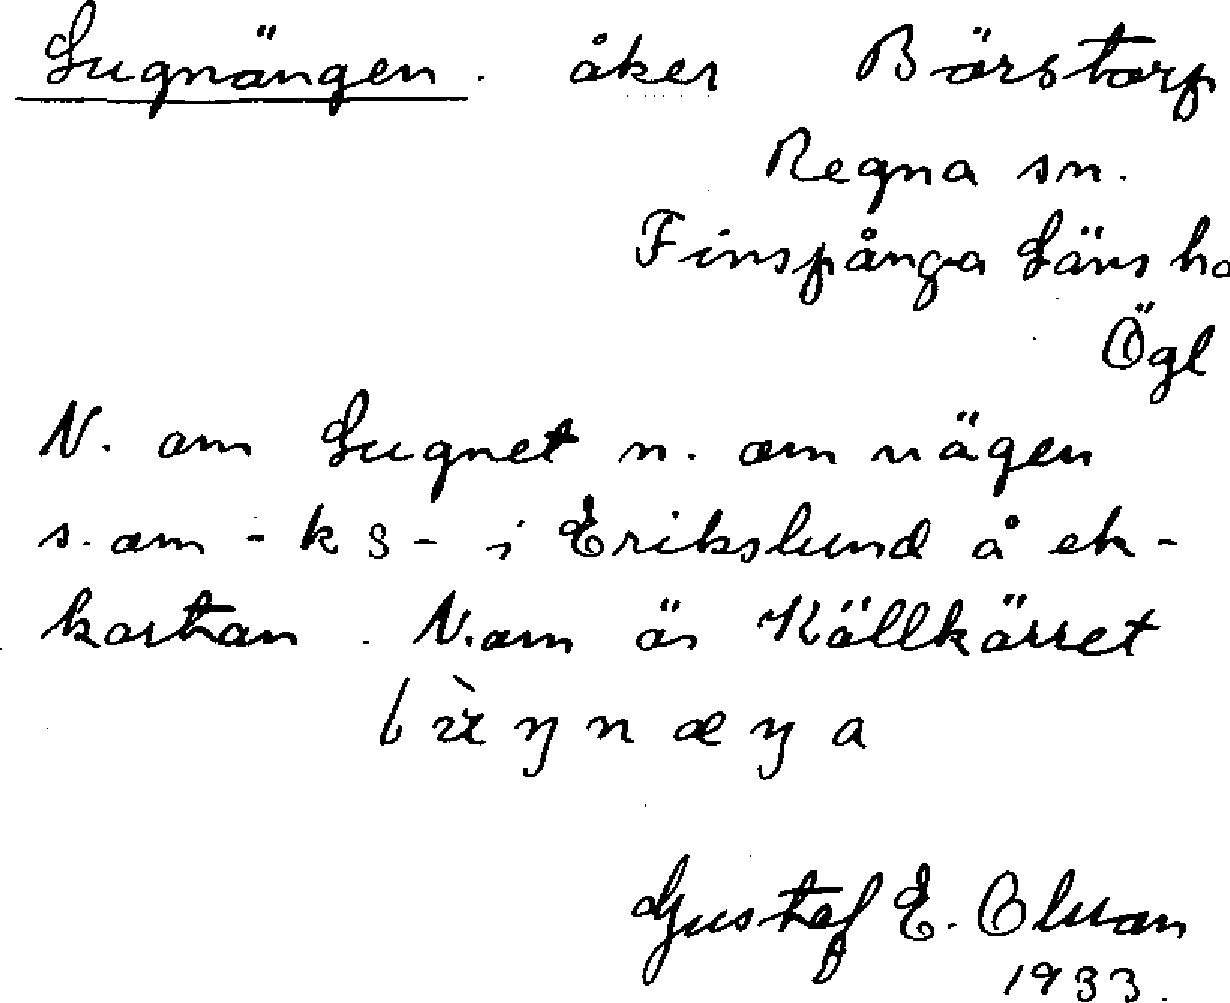 Lugnängen. åker Börstorp
Regna sn.
Finspånga Läns hd
Ögl
N. om Lugnet n. om vägen
s. om - k s - i Erikslund å ek-
kartan. N. om är Källkärret
Gustaf E. Olsson
1933.